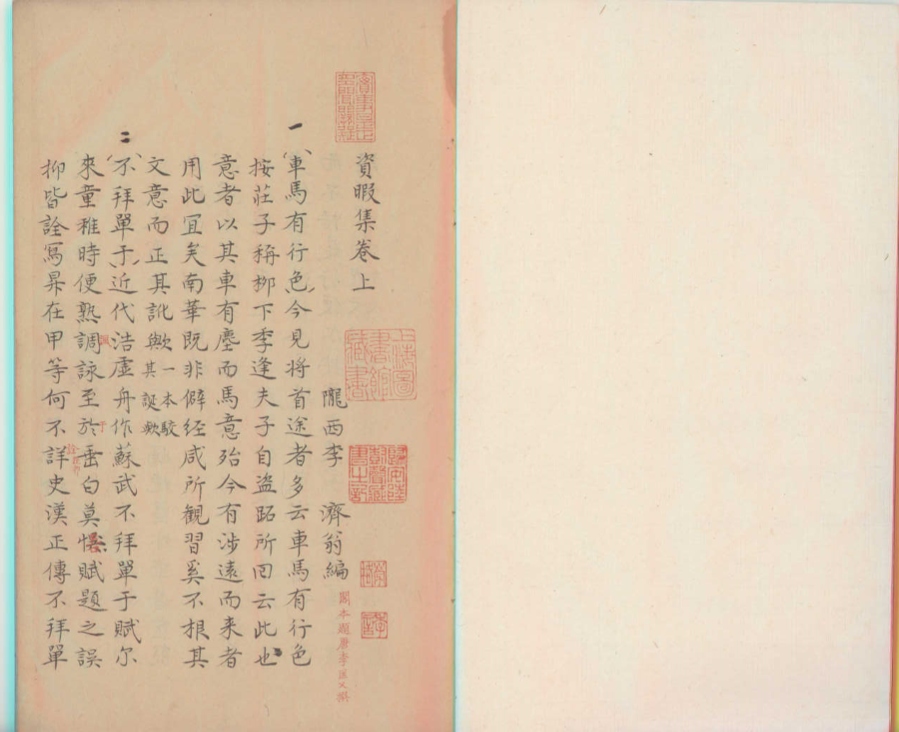 資暇集卷上
隴西李 濟翁編
閣本題唐李匡乂撰
一
車馬有行色今見將首途者多云車馬有行色
按莊子稱柳下季逢夫子自盗跖所回云此也
意者以其車有塵而馬意殆今有涉遠而来者
用此冝矣南華既非僻經咸所観習奚不根其
文意而正其訛歟一本駮其誕歟
二
不拜單于近代浩虛舟作蘇武不拜單于賦尔
來童稚時便熟調詠至於垂白莫悞賦題之誤
抑皆詮寫昇在甲等何不詳史漢正傳不拜單
諷
于
上海圖書館藏書